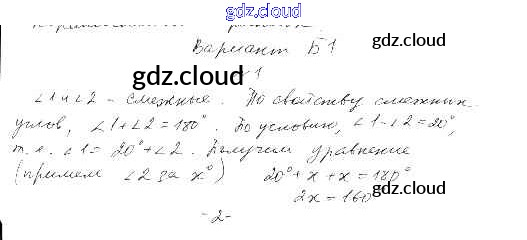 gdz.cloud
Вариант Б1
gdz.cloud
gdz.cloud
1
∠1 и ∠2 - смежные. По свойству смежных
углов, ∠1+∠2=180°. По условию, ∠1-∠2=20°,
gdz.cloud
т.е. ∠1= 20°+∠2. Получим уравнение
(примем ∠2 за x°) 20°+x+x=180°
gdz.cloud
2x=160
-2-
gdz.cloud